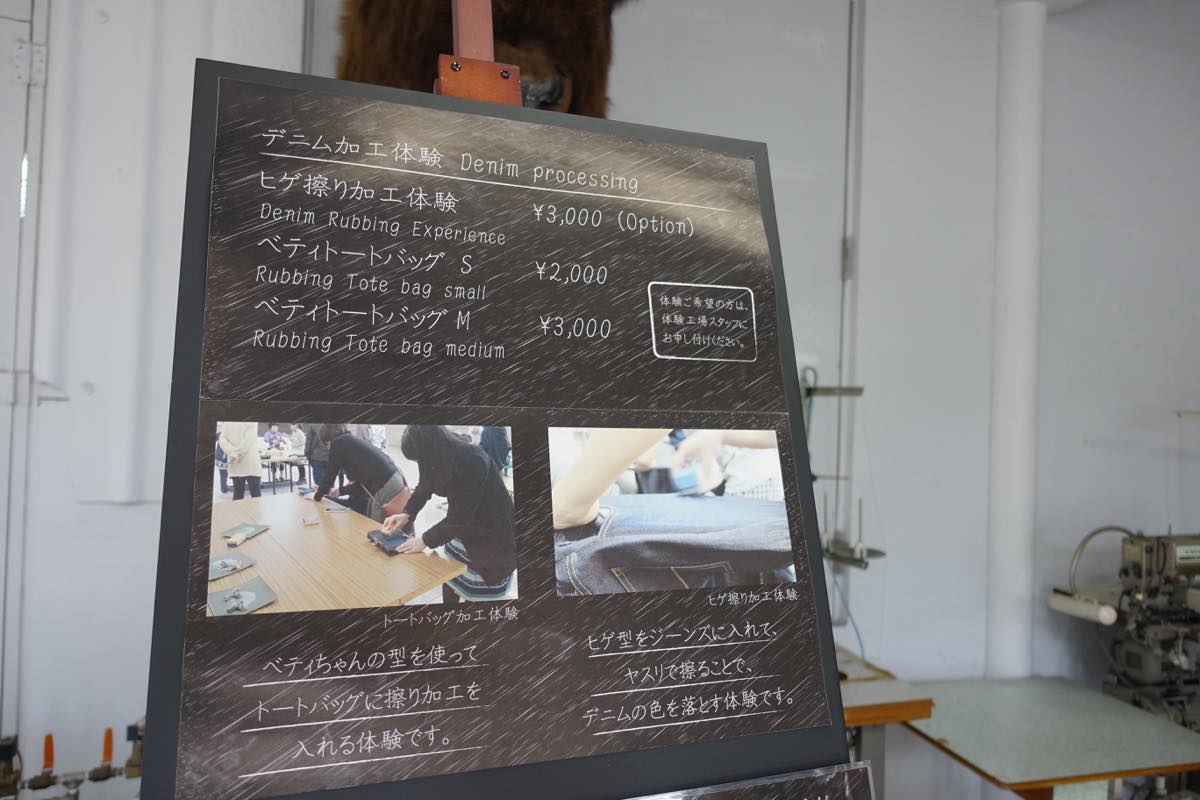 デニム加工体験 Denim processing
ヒゲ擦り加工体験 ¥3,000 (Option)
Denim Rubbing Experience
ベティトートバッグ S ¥2,000
Rubbing Tote bag small
ベティトートバッグ M ¥3,000
Rubbing Tote bag medium
体験ご希望の方は、
体験工場スタッフに
お申し付けください。
トートバッグ加工体験
ヒゲ擦り加工体験
ベティちゃんの型を使って
トートバッグに擦り加工を
入れる体験です。
ヒゲ型をジーンズに入れて、
ヤスリで擦ることで、
デニムの色を落とす体験です。